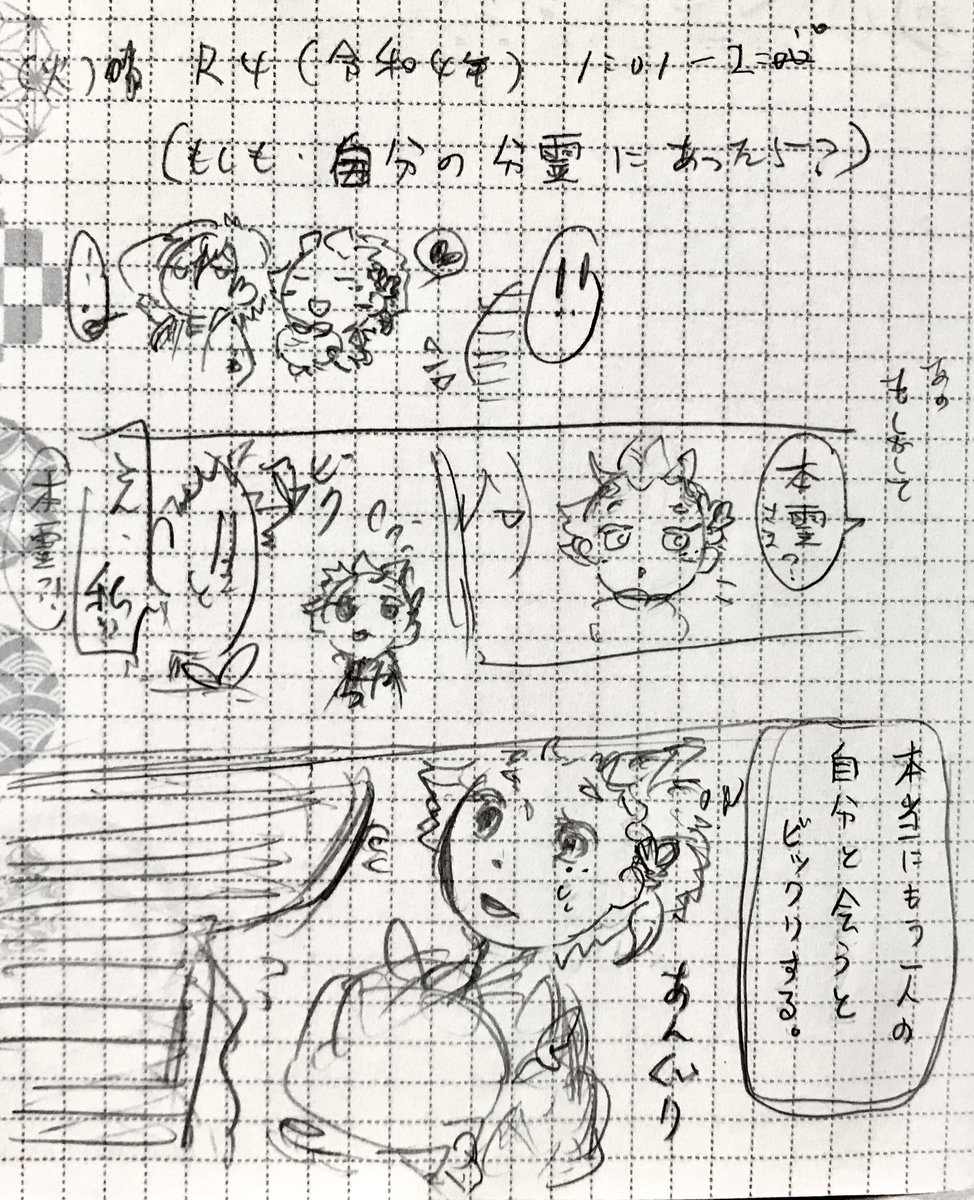 (火)曜 R4(令和4年) 1=01-
(もしも・自分の分霊にあったら?)
!!
あの
もしかして
本霊
ビク
え、
私が
本霊!?
本当にもう一人の
自分と会うと
ビックリする。
あんぐり